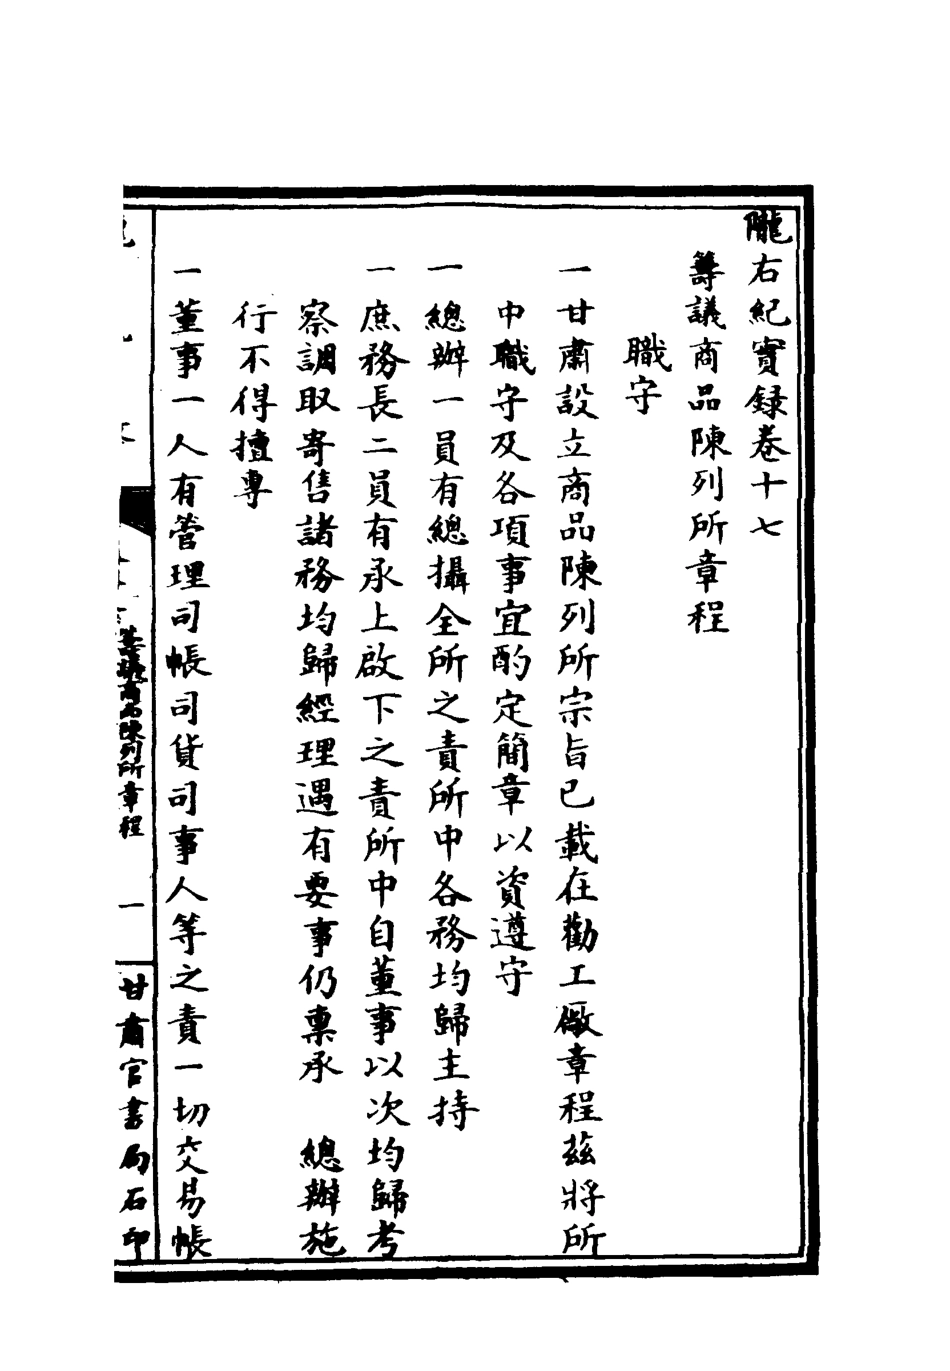 隴右紀實録卷十七
籌議商品陳列所章程
職守
一甘肅設立商品陳列所宗旨已載在勸工廠章程茲將所
中職守及各項事宜酌定簡章以資遵守
一總辦一員有總攝全所之責所中各務均歸主持
一庶務長二員有承上啟下之責所中自董事以次均歸考
察調取寄售諸務均歸經理遇有要事仍稟承　總辦施
行不得擅專
一董事一人有管理司帳司貨司事人等之責一切交易帳
籌議商品陳列所章程
一
甘肅官書局石印